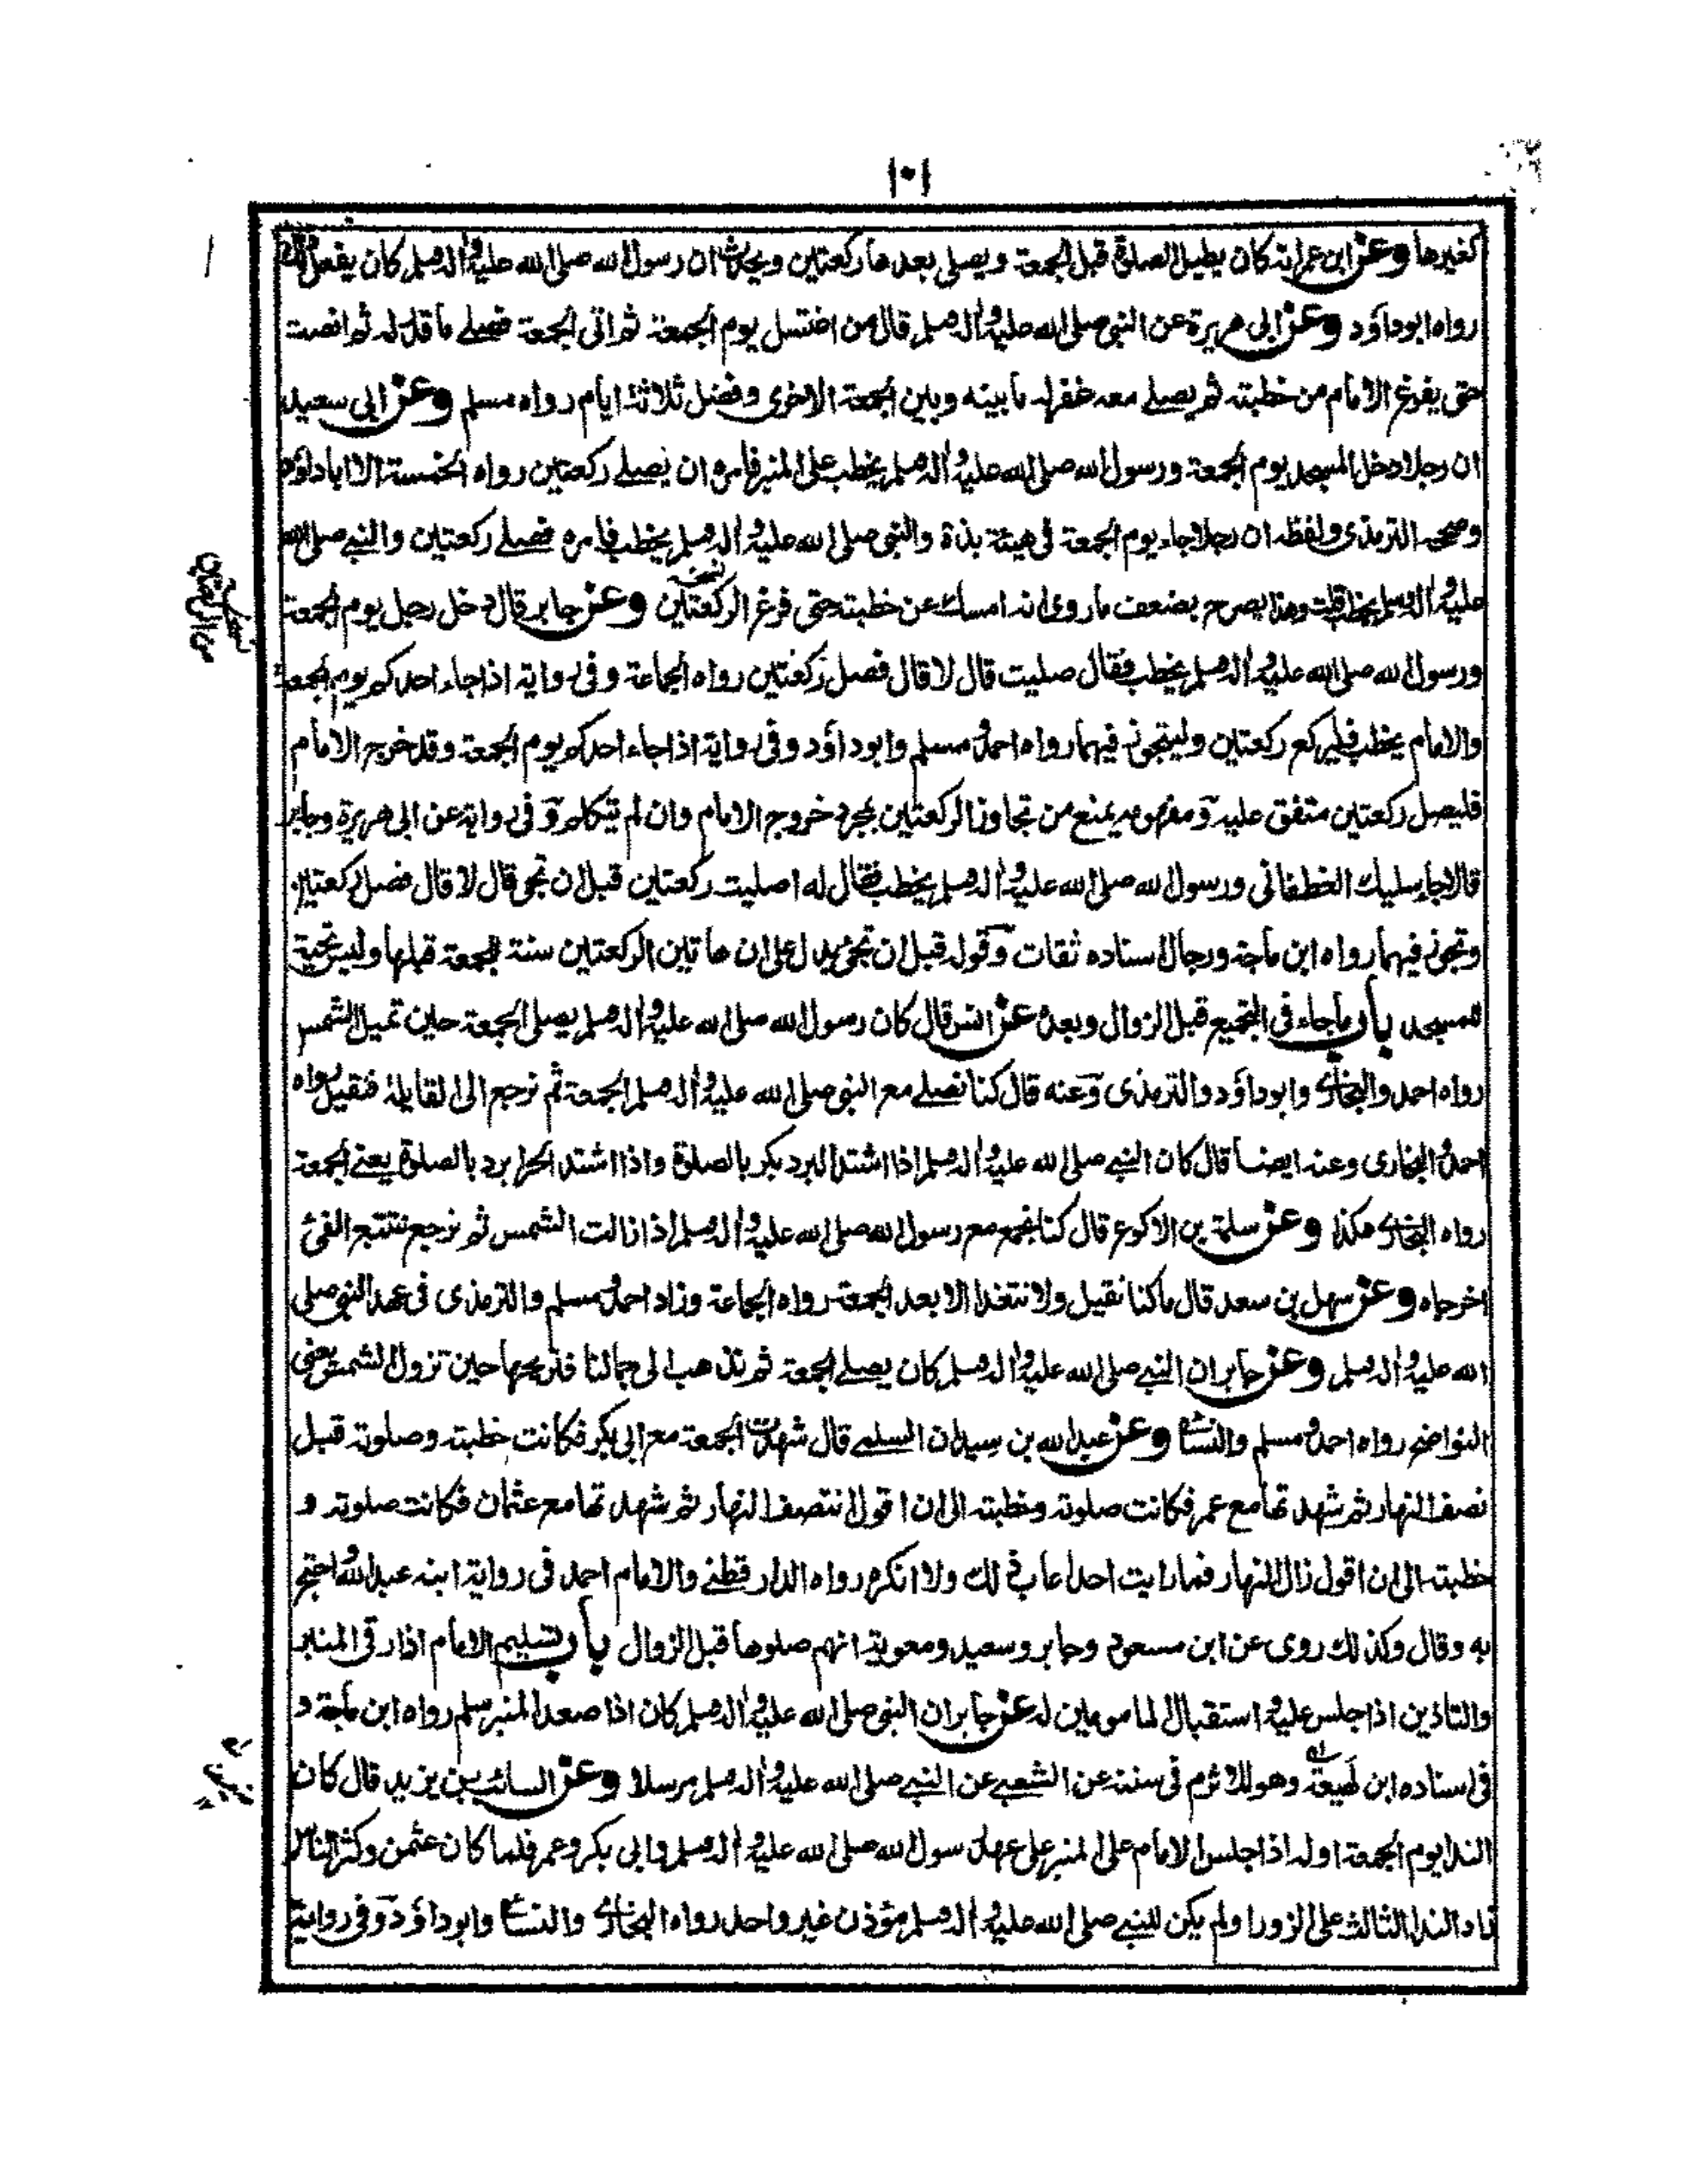 ١٠١
كغيرها وعن ابن عمر انه كان يطيل الصلوة قبل الجمعة ويصلى بعدها ركعتين ويحدث ان رسول الله صلى الله عليه واله وسلم كان يفعل ذلك
رواه ابوداؤد وعن ابى هريرة عن النبى صلى الله عليه واله وسلم قال من اغتسل يوم الجمعة ثم اتى الجمعة فصلے ما قدر له ثم انصت
حتى يفرغ الامام من خطبته ثم يصلے معه غفر له ما بينه وبين الجمعة الاخرى وفضل ثلاثة ايام رواه مسلم وعن ابى سعيد
ان رجلا دخل المسجد يوم الجمعة ورسول الله صلى الله عليه واله وسلم يخطب على المنبر فامره ان يصلے ركعتين رواه الخمسة الا اباداؤد
وصححه الترمذى ولفظه ان رجلا جاء يوم الجمعة فى هيئة بذة والنبى صلى الله عليه واله وسلم يخطب فامره فصلے ركعتين والنبے صلى الله
عليه واله وسلم يخطب قلت وهذا يصرح بضعف ما روى انه امسك عن خطبته حتى فرغ الركعتين وعن جابر قال دخل رجل يوم الجمعة
ورسول الله صلى الله عليه واله وسلم يخطب فقال صليت قال لا قال فصل ركعتين رواه الجماعة وفى رواية اذا جاء احدكم يوم الجمعة
والامام يخطب فليركع ركعتين وليتجوز فيهما رواه احمد ومسلم وابوداؤد وفى رواية اذا جاء احدكم يوم الجمعة وقد خرج الامام
فليصل ركعتين متفق عليه ومفهومه يمنع من تجاوز الركعتين بمجرد خروج الامام وان لم يتكلم وفى رواية عن ابى هريرة وجابر
قالا جاء سليك الغطفانى ورسول الله صلى الله عليه واله وسلم يخطب فقال له اصليت ركعتين قبل ان تجى قال لا قال فصل ركعتين
وتجوز فيهما رواه ابن ماجة ورجال اسناده ثقات وقوله قبل ان تجئ يدل على ان هاتين الركعتين سنة للجمعة قبلها وليس تحية
للمسجد باب ما جاء فى التجميع قبل الزوال وبعده عن انس قال كان رسول الله صلى الله عليه واله وسلم يصلى الجمعة حين تميل الشمس
رواه احمد والبخارى وابوداؤد والترمذى وعنه قال كنا نصلے مع النبى صلى الله عليه واله وسلم الجمعة ثم نرجع الى القايلة فنقيل رواه
احمد والبخارى وعنه ايضا قال كان النبے صلى الله عليه واله وسلم اذا اشتد البرد بكر بالصلوة واذا اشتد الحر ابرد بالصلوة يعنے الجمعة
رواه البخارى هكذا وعن سلمة بن الاكوع قال كنا نجمع مع رسول الله صلى الله عليه واله وسلم اذا زالت الشمس ثم نرجع نتتبع الفئ
اخرجاه وعن سهل بن سعد قال ما كنا نقيل ولا نتغدا الا بعد الجمعة رواه الجماعة وزاد احمد ومسلم والترمذى فى عهد النبى صلى
الله عليه واله وسلم وعن جابر ان النبے صلى الله عليه واله وسلم كان يصلے الجمعة ثم نذهب الى جمالنا فنريحها حين تزول الشمس يعنى
النواضح رواه احمد ومسلم والنسائى وعن عبد الله بن سيدان السلمے قال شهدت الجمعة مع ابى بكر فكانت خطبته وصلوته قبل
نصف النهار ثم شهد تها مع عمر فكانت صلوته وخطبته الى ان اقول انتصف النهار ثم شهد تها مع عثمان فكانت صلوته و
خطبته الى ان اقول زال النهار فما رايت احدا عاب ذلك ولا انكره رواه الدارقطنے والامام احمد فى رواية ابنه عبد الله واحتج
به وقال وكذلك روى عن ابن مسعود وجابر وسعيد ومعوية انهم صلوها قبل الزوال باب تسليم الامام اذا رقى المنبر
والتاذين اذا جلس عليه واستقبال المامومين له عن جابر ان النبى صلى الله عليه واله وسلم كان اذا صعد المنبر سلم رواه ابن ماجة و
فى اسناده ابن لهيعة وهو للاثرم فى سننه عن الشعبے عن النبے صلى الله عليه واله وسلم مرسلا وعن السائب بن يزيد قال كان
الندا يوم الجمعة اوله اذا جلس الامام على المنبر على عهد رسول الله صلى الله عليه واله وسلم وابى بكر وعمر فلما كان عثمن وكثر الناس
زاد الندا الثالث على الزورا ولم يكن للنبے صلى الله عليه واله وسلم مؤذن غير واحد رواه البخارى والنسائى وابوداؤد وفى رواية